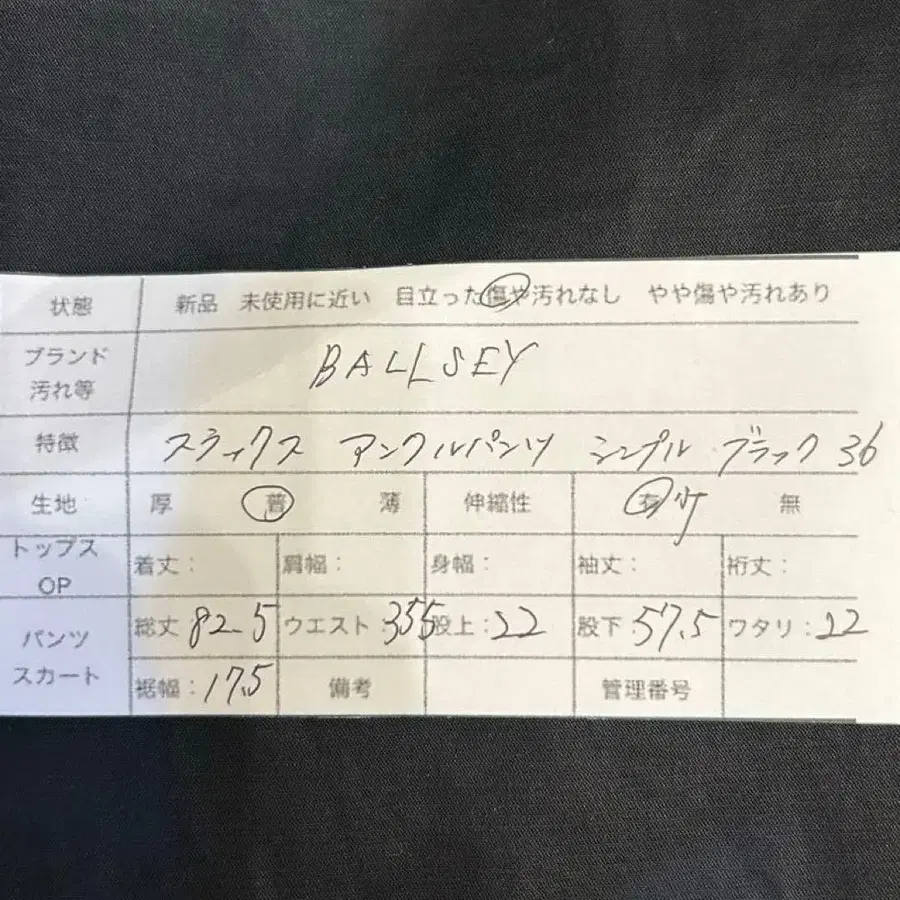 状態 新品 未使用に近い 目立った傷や汚れなし やや傷や汚れあり
ブランド
汚れ等
BALLSEY
特徴 スラックス アンクルパンツ シンプル ブラック 36
生地 厚 普 薄 伸縮性 有 少 無
トップス
OP
着丈: 肩幅: 身幅: 袖丈: 裄丈:
パンツ
スカート
総丈 82.5 ウエスト: 35.5 股上: 22 股下: 57.5 ワタリ: 22
裾幅: 17.5 備考 管理番号